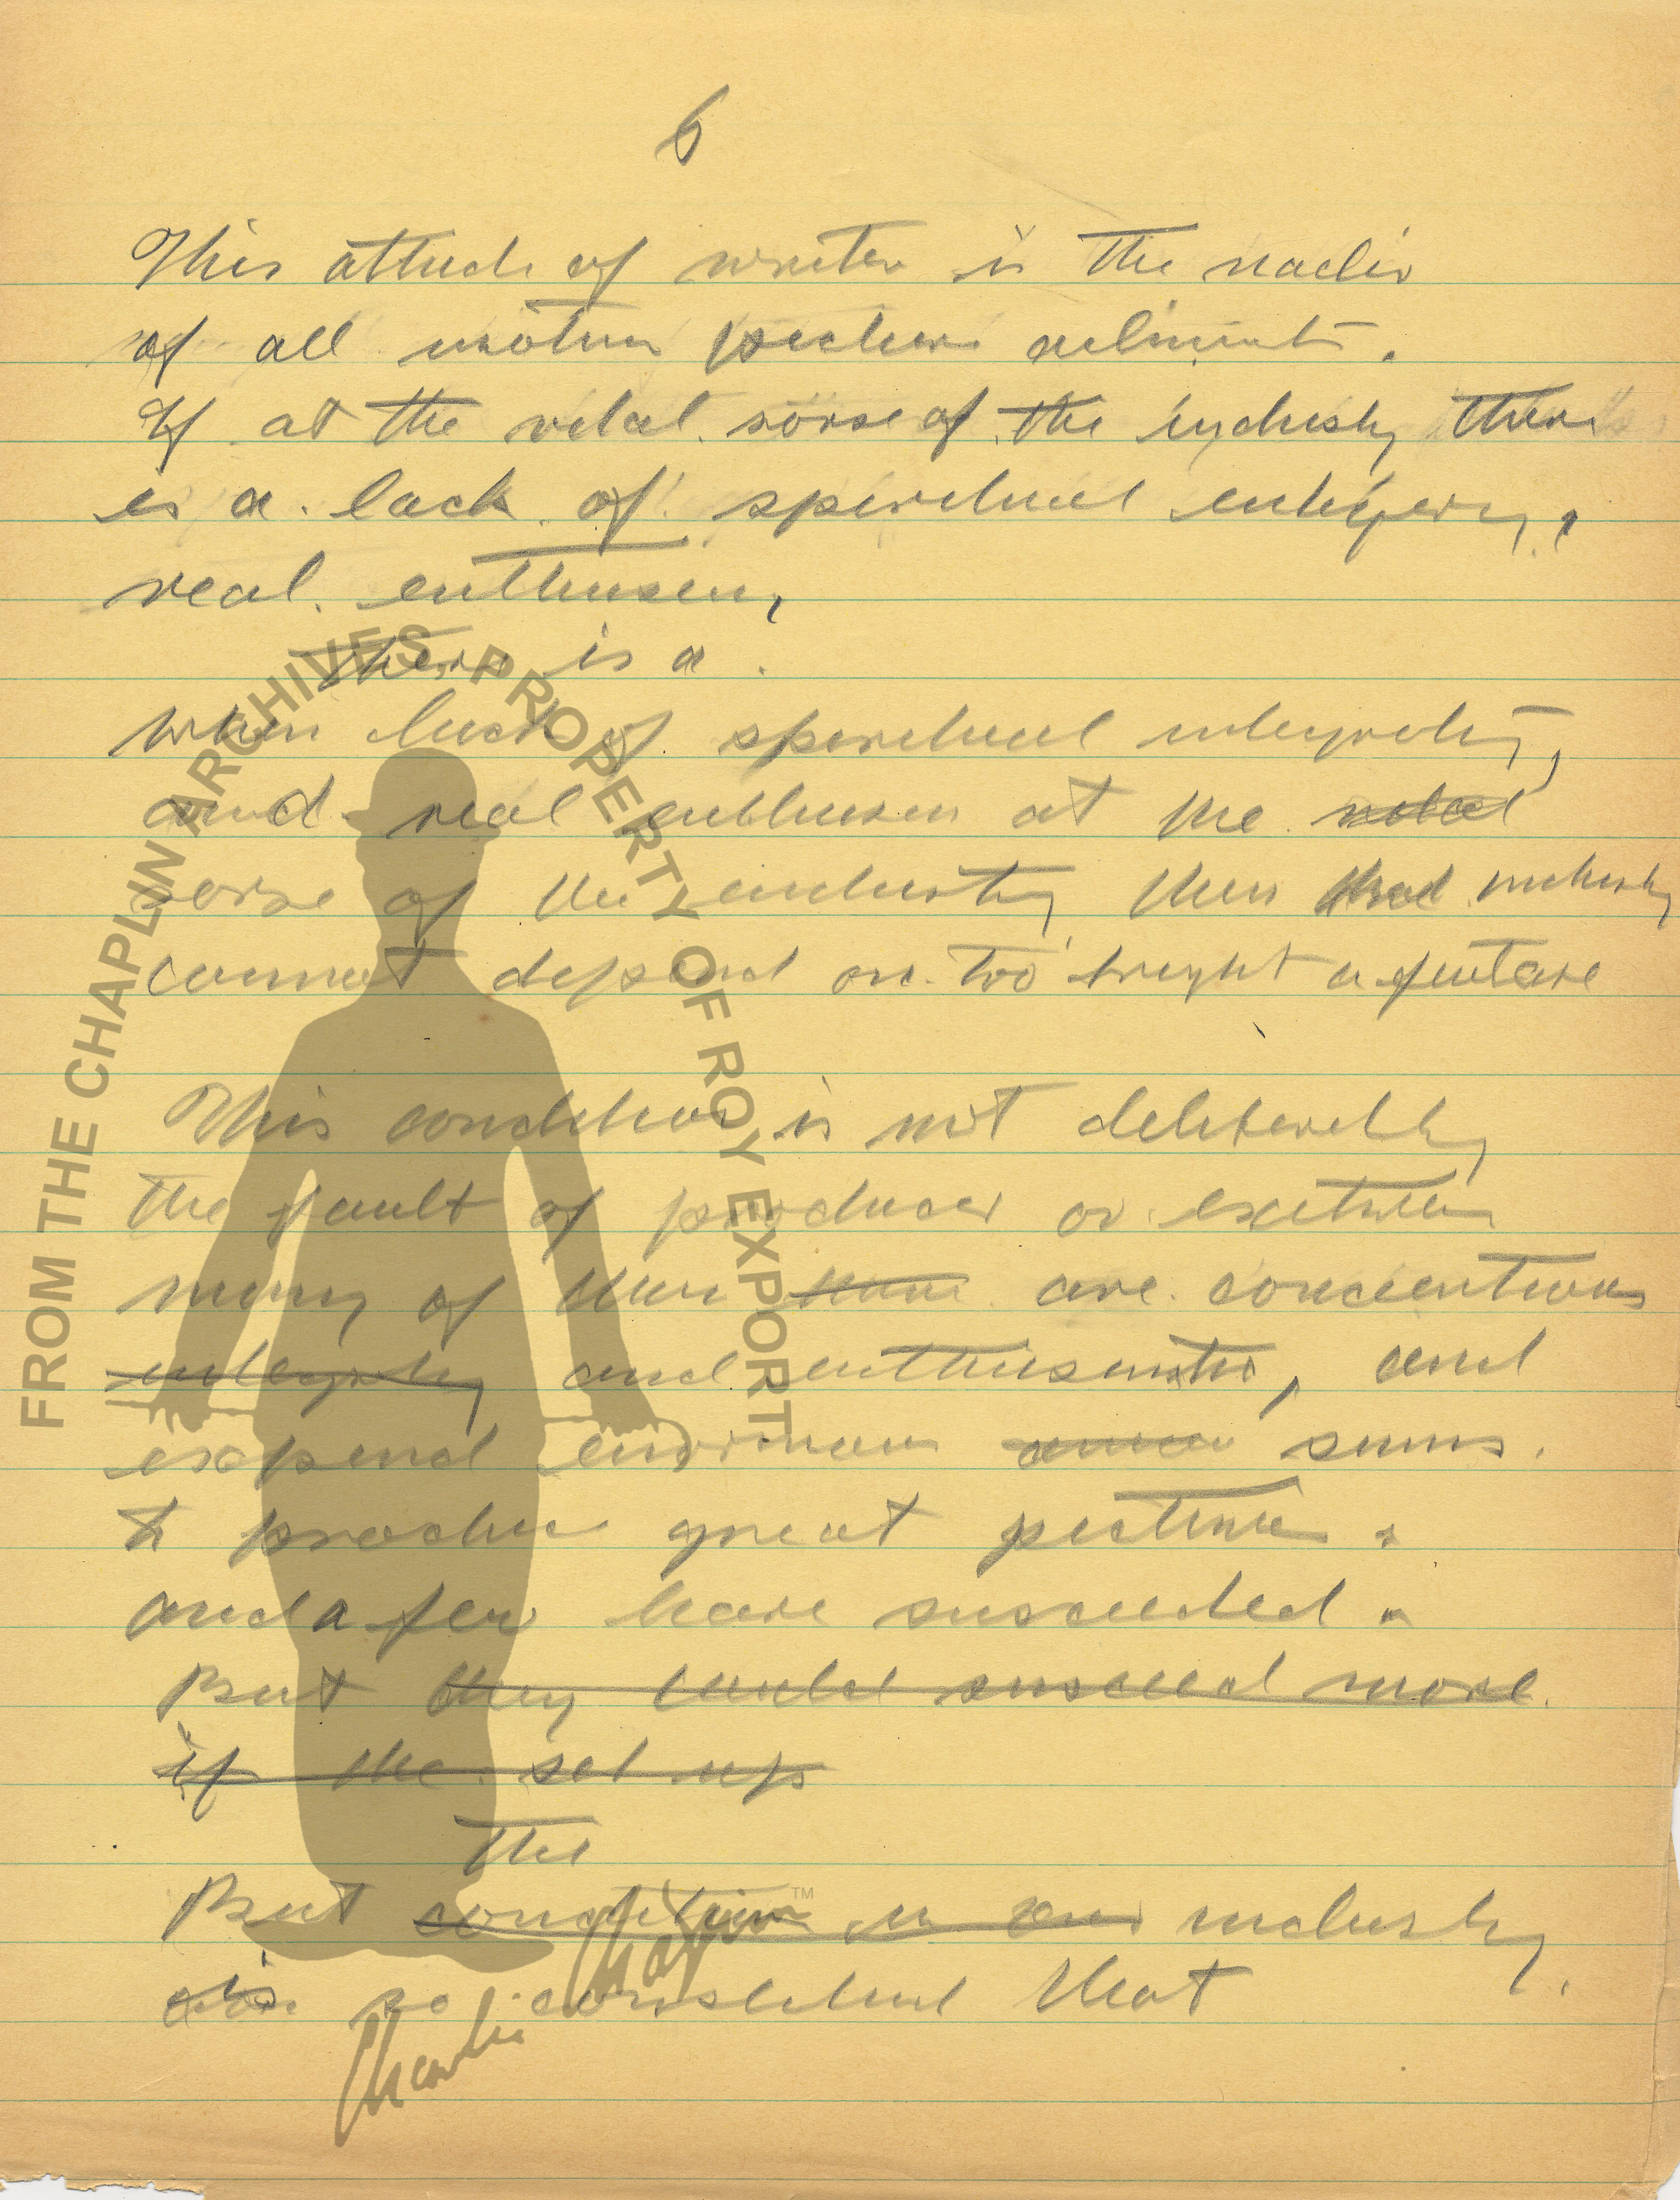 6
This attude of writer is the nadir
of all motion picture ailments.
If at the vital sorse of the industry there
is a lack of spiritual integrity,
real enthusem,
There is a
when luck of spiritual integrety,
and real enthusem at the vital
sorse of the industry then that industry
cannot depend on too bright a future
This condition is not deliberetly
the fault of producer or exetives
many of them have are concientious
integrity and enthusiastic, and
expend enormous sums.
to produce great pictures.
and a few have succeeded.
But they would succeed more
if the set up
the
But condition in our industry
is so constituted that
FROM THE CHAPLIN ARCHIVES PROPERTY OF ROY EXPORT
Charlie Chaplin
TM